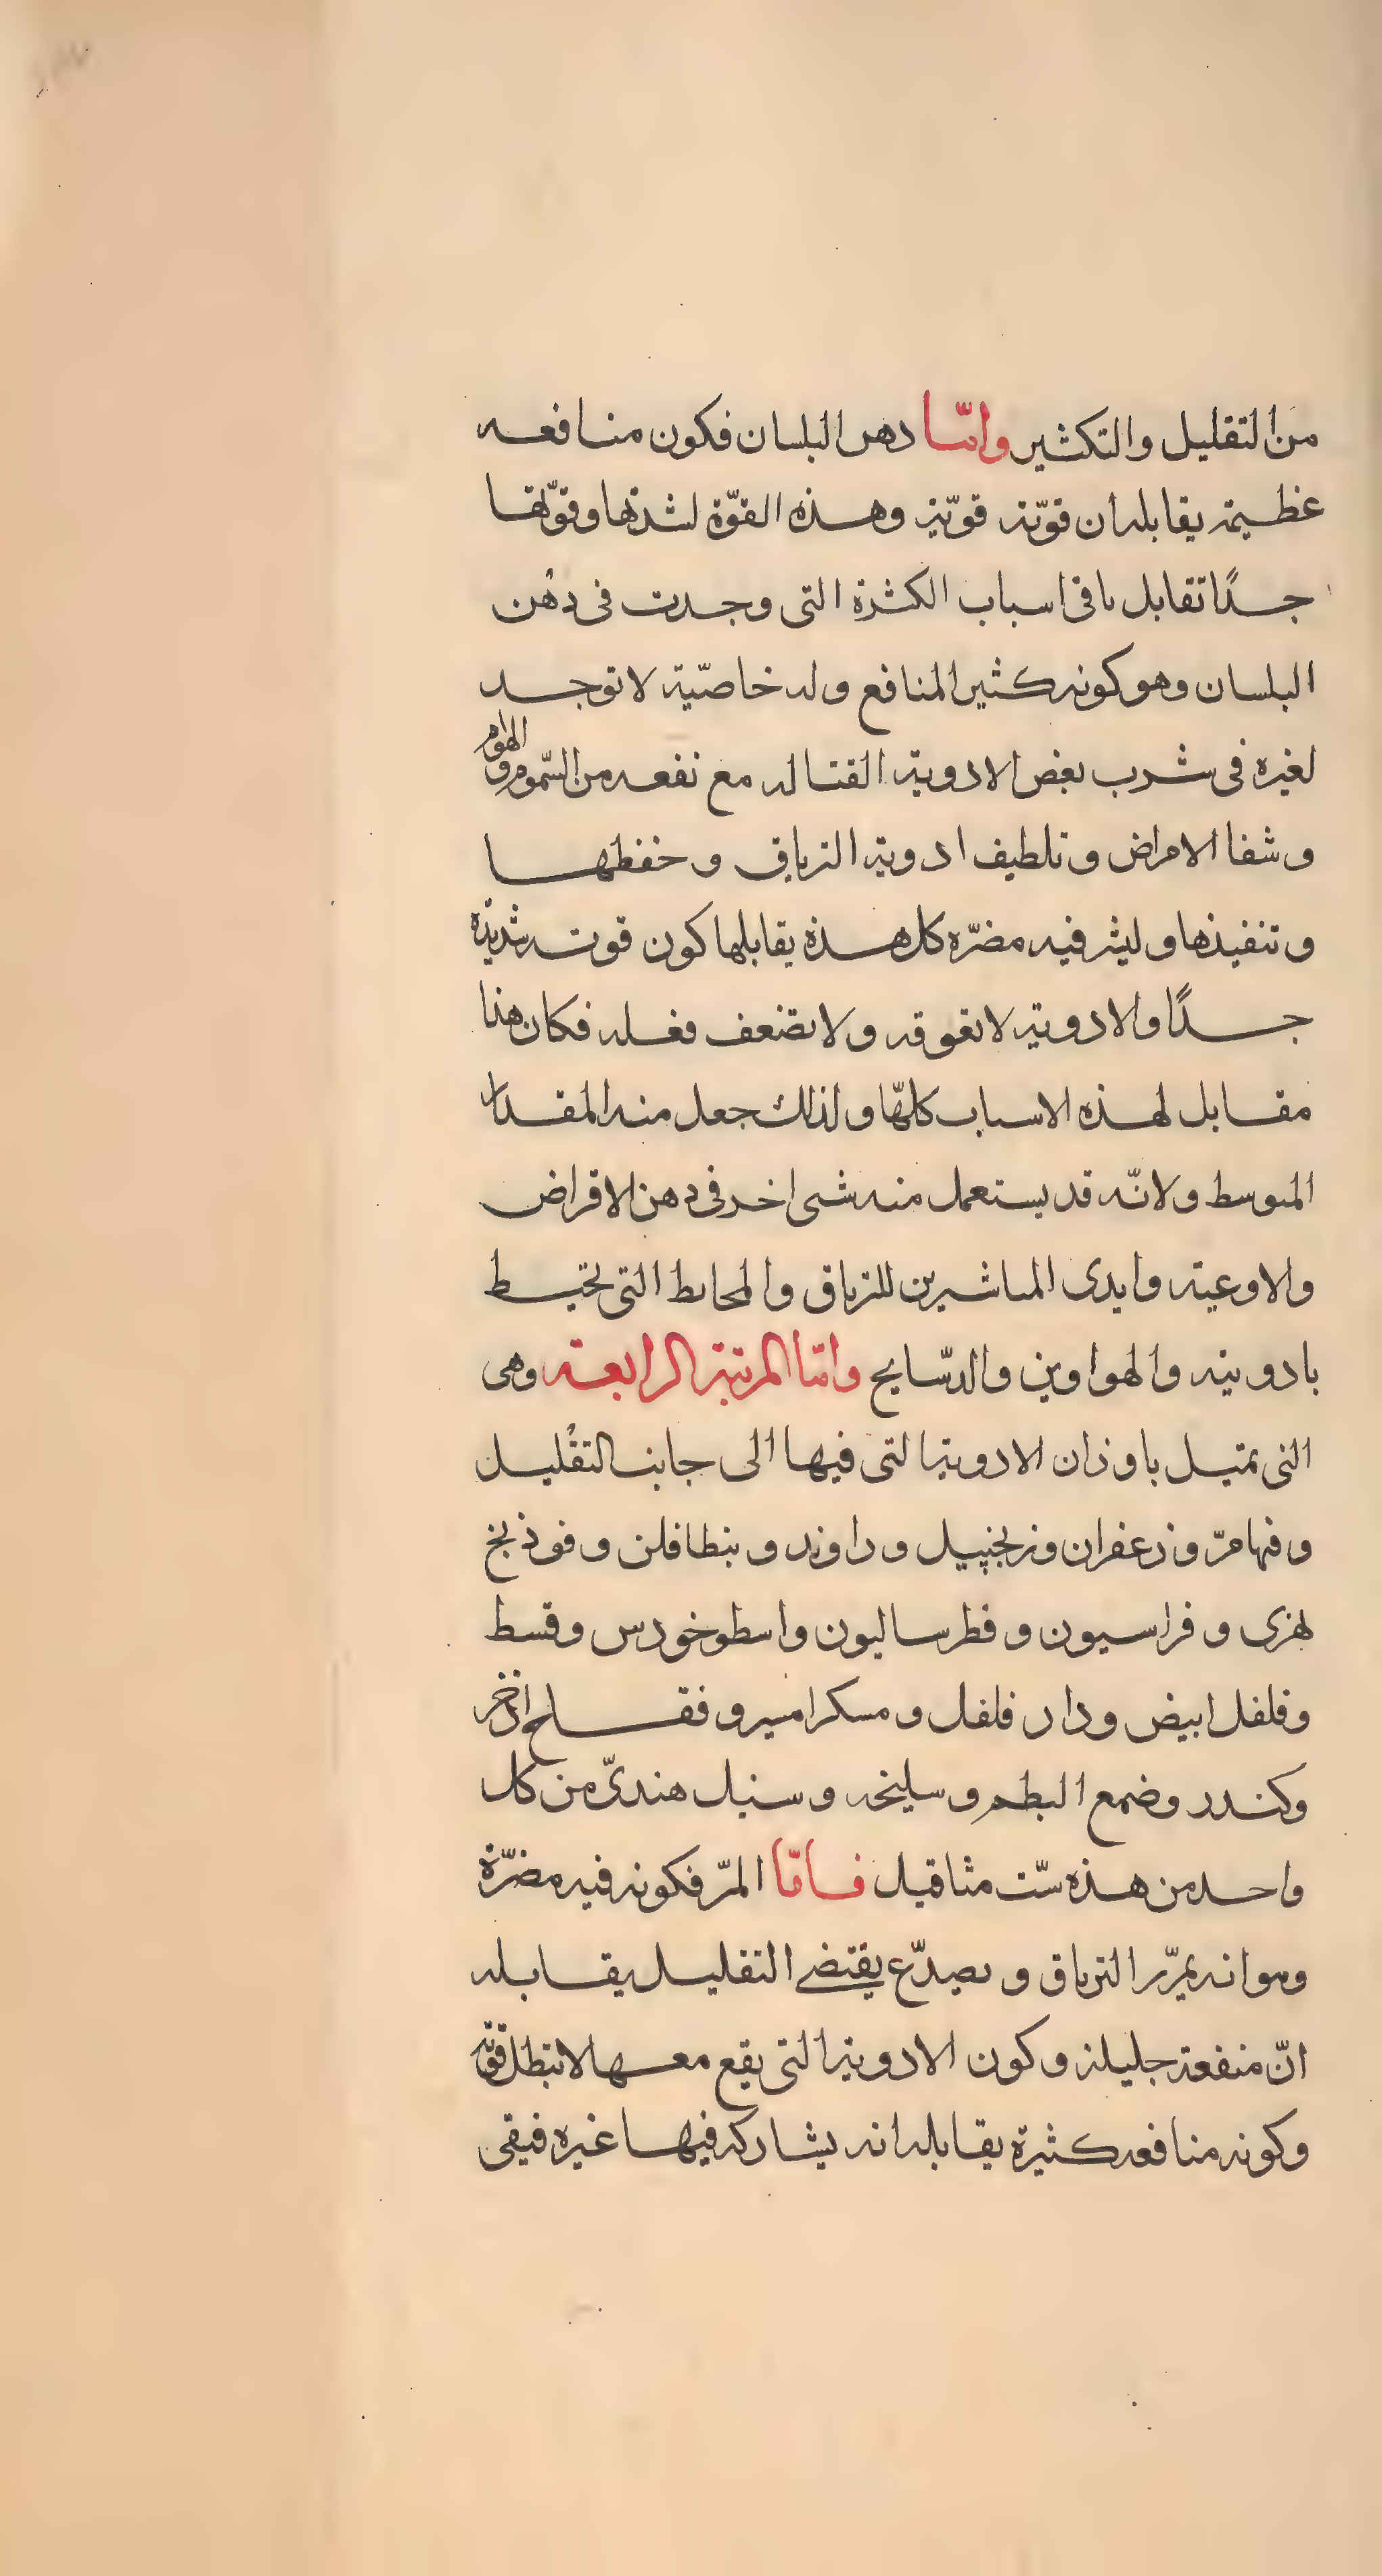 من التقليل والتكثير وامّا دهن البلسان فكون منافعه
عظيمة يقابله ان قوّته قويّة وهذه القوّة لشدّتها وقوّتها
جدًا تقابل باقى اسباب الكثرة التى وجدت فى دهن
البلسان وهو كونه كثير المنافع وله خاصّية لا توجد
لغيره فى شرب بعض الادوية القتاله مع نفعه من السّموم و الهوام
وشفا الامراض وتلطيف ادوية الترياق وحفظها
وتنفيذها وليس فيه مضرّه كل هذه يقابلها كون قوته شديدة
جدًا والادوية لا تعوقه ولا تضعف فعله فكان هذا
مقابل لهذه الاسباب كلهّا ولذلك جعل منه المقدار
المتوسط ولانّه قد يستعمل منه شى اخر فى دهن الاقراض
والاوعية وايدى المباشرين للترياق والمحابط التى تحيط
بادويته والهواوين والدسّايج وامّا المرتبة الرابعة وهى
التى تميل باوزان الادوية التى فيها الى جانب التقليل
وفيها مرّ وزعفران وزنجبيل وراوند وبنطافلن وفوذنج
نهرى وفراسيون وفطرساليون واسطوخودس وقسط
وفلفل ابيض ودار فلفل ومسكرامسير وفقاح اذخر
وكندر وضمع البطم وسليخه وسنبل هندىّ من كل
واحد من هذه ستّ مثاقيل فامّا المرّ فكونه فيه مضرّة
وهو انه يمرّر الترياق ويصدّع يقتضى التقليل يقابله
انّ منفعته جليلة وكون الادوية التى يقع معها لا تبطل قوّته
وكونه منافعه كثيرة يقابله انه يشاركه فيها غيره فيقى